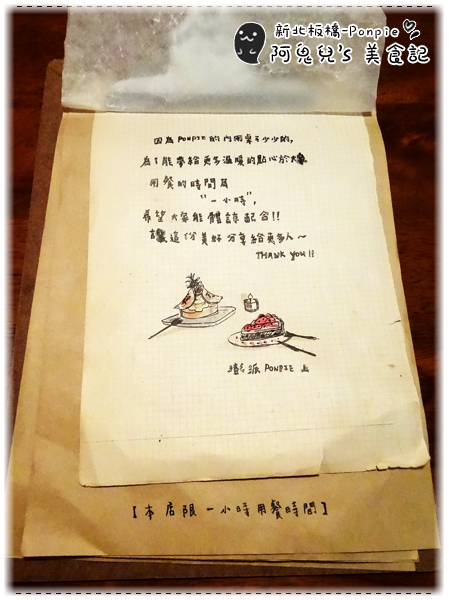 新北板橋-Ponpie
阿鬼兒's 美食記
因為 PONPIE 的內用桌子少少的,
為了能帶給更多溫暖的點心於大家
用餐的時間為
"一小時",
希望大家能體諒配合!!
讓這份美好分享給更多人~
THANK YOU!!
派 PONPIE 上
【本店限一小時用餐時間】